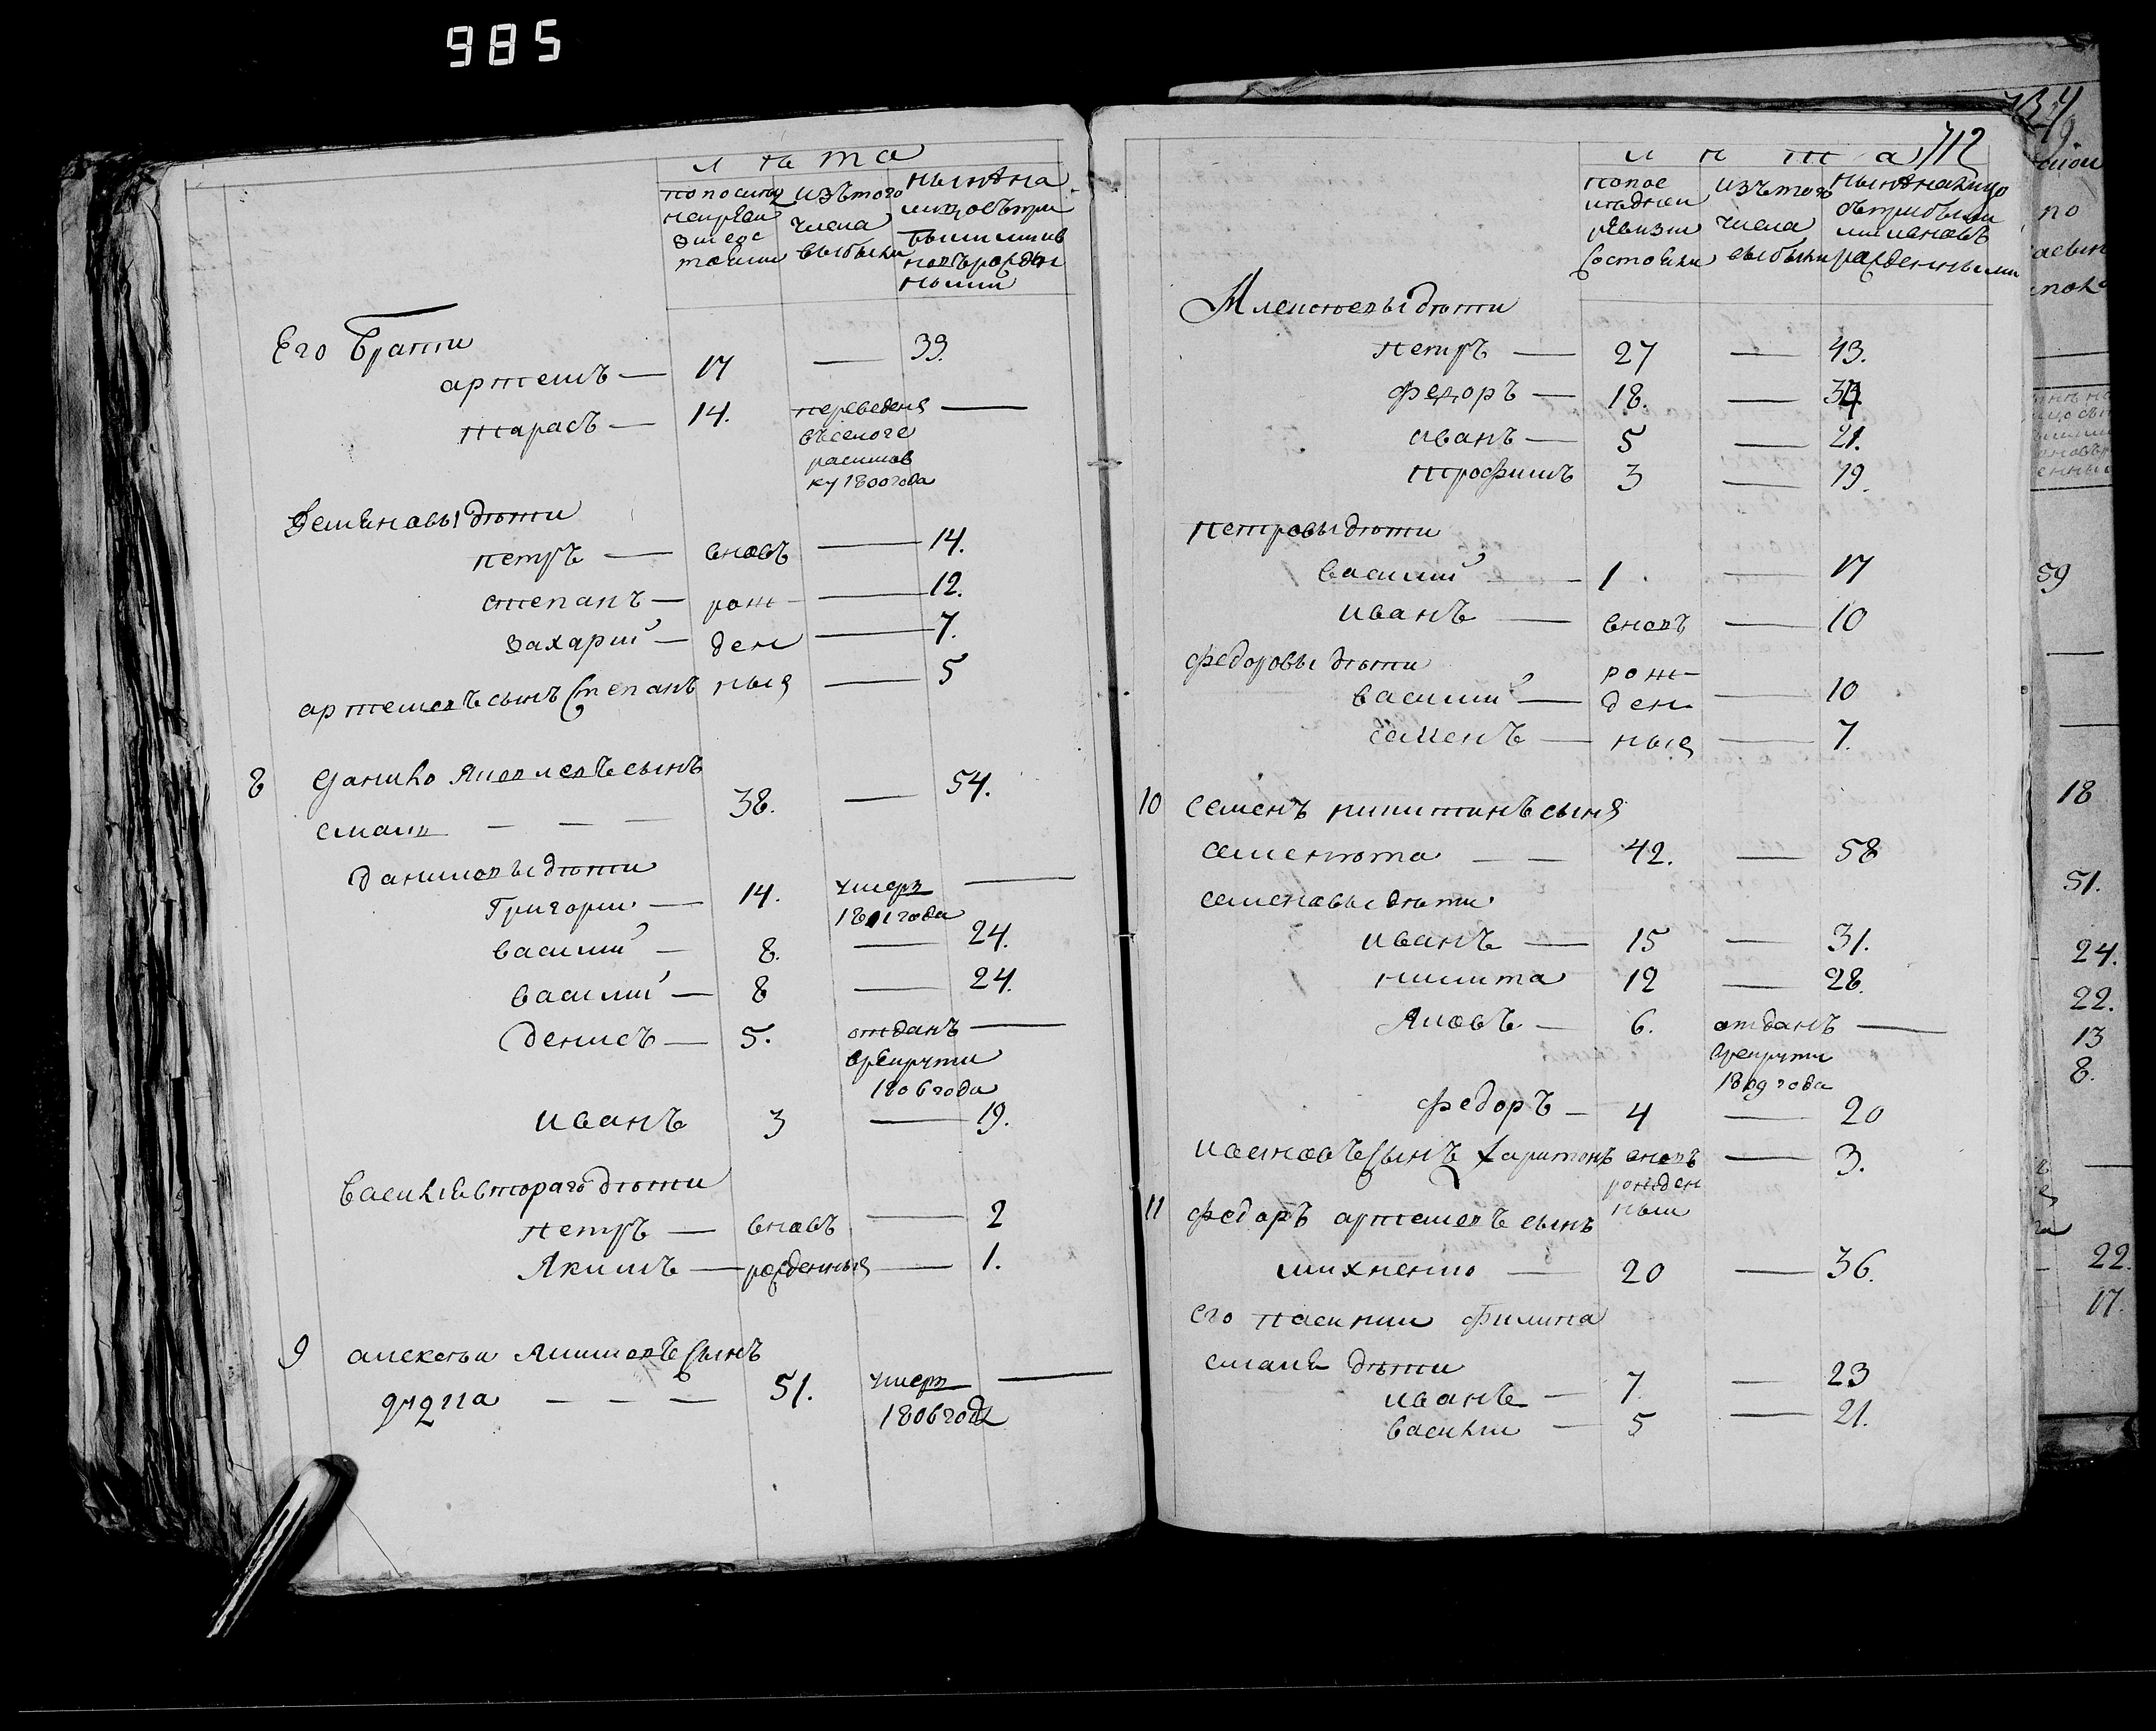 985
лѣта
по послед
ней реви
зии сос
тояли
изътого
числа
выбыли
нынѣ на
лицо съ при
былыми и в
новъ рожден
ными
Его Братя
артемъ — 17 — 33.
тарасъ — 14. переведенъ —
въ селоге
ку 1800 года
Демяновы дѣти
петръ — вновъ — 14.
степанъ — рож — 12.
Захарий — ден — 7.
артемовъ сынъ Степанъ ныя — 5
8 Данило Яковлевъ сынъ
38. — 54.
Даниловы дѣти
Григорий — 14. умеръ —
1801 года
василий — 8. — 24.
василий — 8 — 24.
Денисъ — 5. отданъ —
врекруты
1806 года
иванъ 3 — 19.
василія втораго дѣти
петръ — вновъ — 2
Якимъ — рожденныя — 1.
9 алексѣй Якимовъ сынъ
— — — 51. умеръ —
1806 года
лѣта 712
попос
ледней
ревизи
состояли
изътого
числа
выбыли
нынѣ налицо
съ прибылы
ми и вновъ
рожденными
Алексѣевы дѣти
петръ — 27 — 43.
федоръ — 18. — 34.
иванъ — 5 — 21.
трофимъ 3 — 19.
петровы дѣти
василий — 1 — 17
иванъ — вновъ — 10
федоровы дѣти рож
василий — ден — 10
семенъ — ныя — 7.
10 семенъ никитинъ сынъ
семенюта — — 42. — 58
семеновы дѣти
иванъ — 15 — 31.
никита 12 — 28.
Яковъ — 6. отданъ —
врекруты
1809 года
федоръ — 4 — 20
ивановъ сынъ Харитонъ вновъ — 3.
рожден
ный
11 федоръ артемовъ сынъ
михненко — 20 — 36.
его пасинки филипа
дѣти
иванъ — 7. — 23
василий — 5 — 21.
по
59
18
51.
24.
22.
13
8.
22.
17.